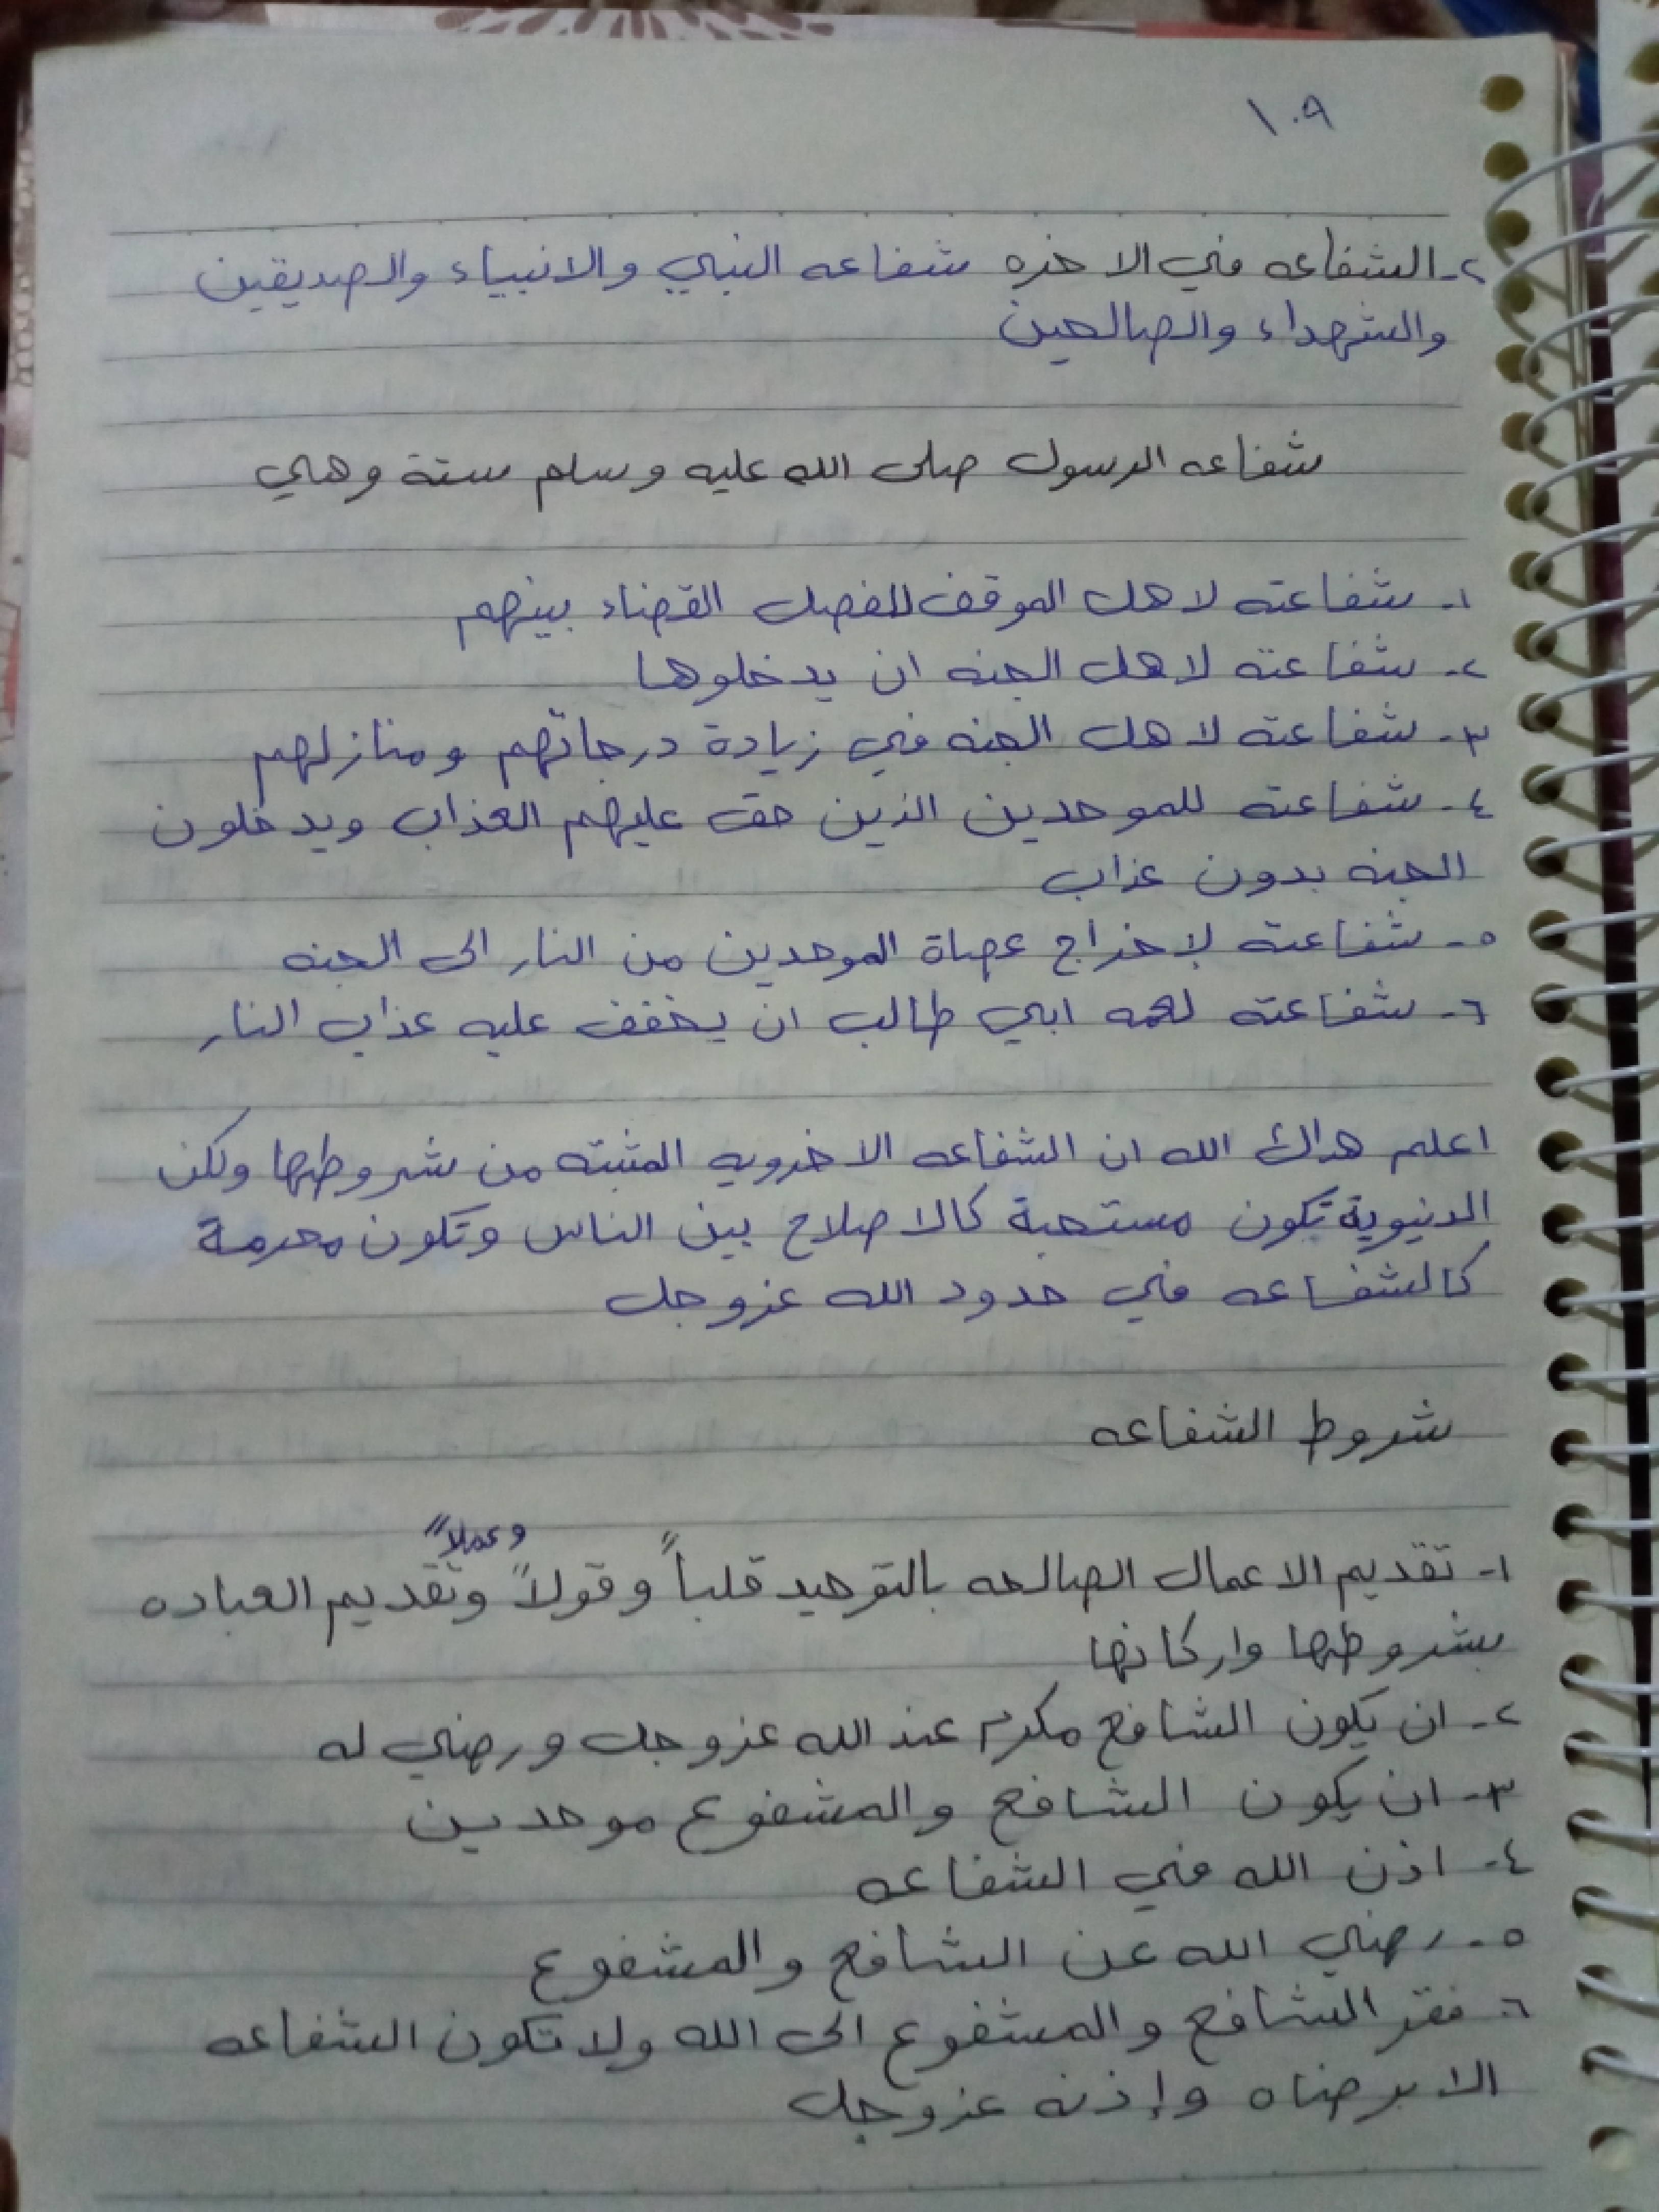 ١٠٩
٢- الشفاعه في الاخره شفاعه النبي والانبياء والصديقين
والشهداء والصالحين
شفاعه الرسول صلى الله عليه وسلم ستة وهي
١- شفاعته لاهل الموقف للفصل القضاء بينهم
٢- شفاعته لاهل الجنه ان يدخلوها
٣- شفاعته لاهل الجنه في زيادة درجاتهم ومنازلهم
٤- شفاعته للموحدين الذين حق عليهم العذاب ويدخلون
الجنه بدون عذاب
٥- شفاعته لإخراج عصاة الموحدين من النار الى الجنه
٦- شفاعته لعمه ابي طالب ان يخفف عليه عذاب النار
اعلم هداك الله ان الشفاعه الاخرويه المثبته من شروطها ولكن
الدنيوية تكون مستحبة كالاصلاح بين الناس وتكون محرمة
كالشفاعه في حدود الله عزوجل
شروط الشفاعه
وعملاً
١- تقديم الاعمال الصالحه بالتوحيد قلباً وقولاً وتقديم العباده
بشروطها واركانها
٢- ان يكون الشافع مكرم عند الله عزوجل ورضي له
٣- ان يكون الشافع والمشفوع موحدين
٤- اذن الله في الشفاعه
٥- رضي الله عن الشافع والمشفوع
٦- فقر الشافع والمشفوع الى الله ولا تكون الشفاعه
الا برضاه وإذنه عزوجل